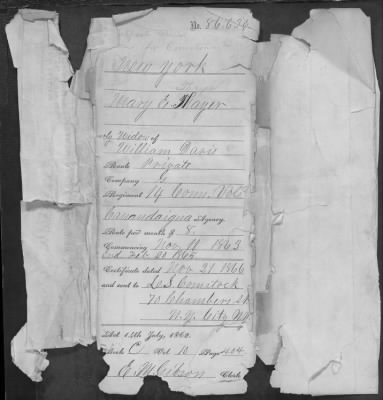 No. 86.634
New York
Mary E. Thayer
Widow of
William Davis
Rank Private
Company G
Regiment 14 Conn. Vols
Canandaigua Agency.
Rate per month $ 8.
Commencing Nov 11 1863
End Feb 20 1865
Certificate dated Nov. 21 1866
and sent to L.S. Comstock
70 Chambers St
N.Y. City N.Y.
Act 14th July, 1862.
Book C Vol 10 Page 404
C. M. Gibson Clerk